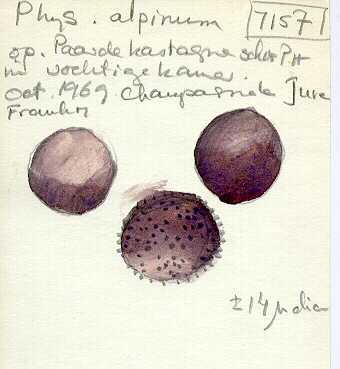 Phys. alpinum 7157
op. Paardekastagne schors PH
in vochtige kamer.
Oct. 1969 Champagnole Jura
Frankr
± 14 µ diam